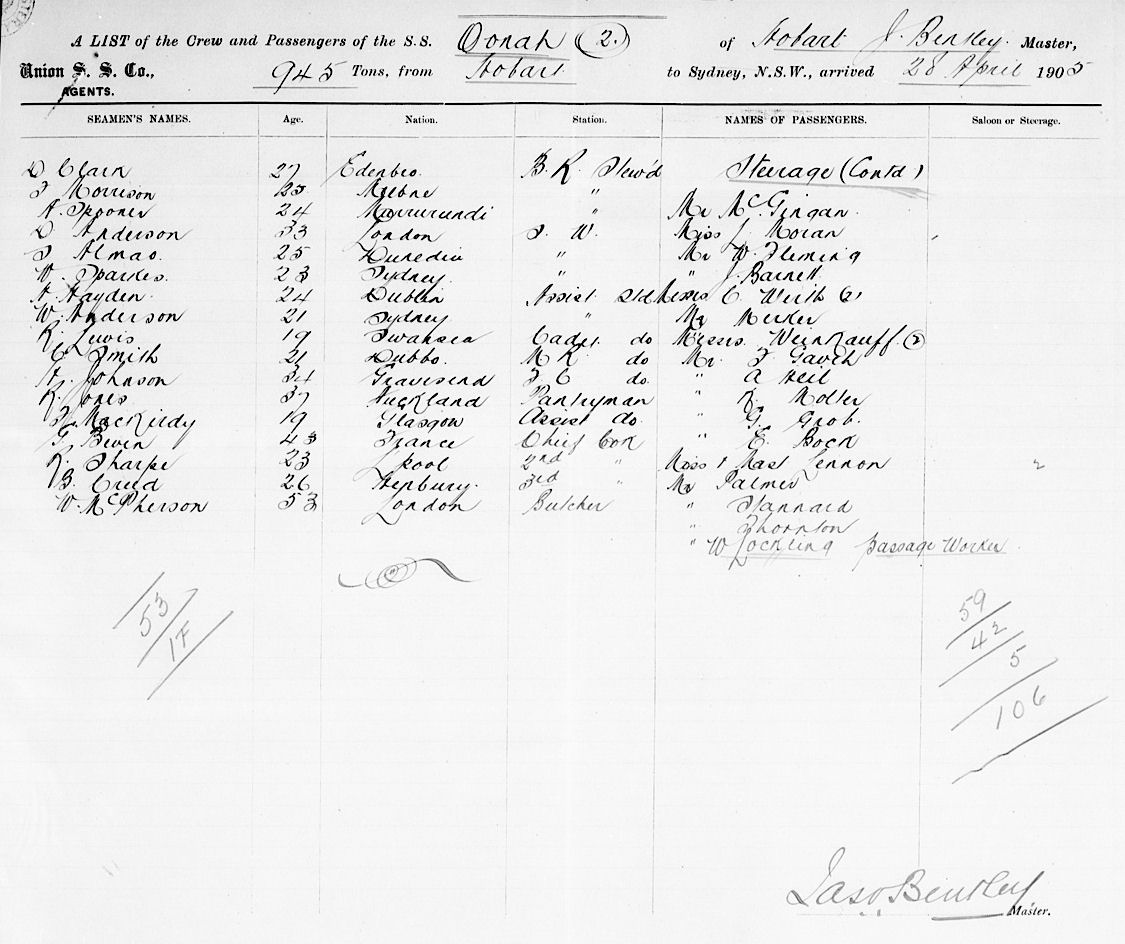 A LIST of the Crew and Passengers of the S.S. Oonah (2.) of Hobart J. Bentley. Master,
Union S. S. Co., 945 Tons, from Hobart. to Sydney, N.S.W., arrived 28 April 1905
AGENTS.
SEAMEN'S NAMES. Age. Nation. Station. NAMES OF PASSENGERS. Saloon or Steerage.
D Clark 27 Edenbro. B. R. Stew'd Steerage (Contd)
J Morrison Melbne "
A. Spooner 24 Murrurundi " Mr McGingan.
D Anderson 33 London S. W. Miss J. Moran
J Almao. 25 Dunedin " Mr W. Fleming
W. Sparkes. 23 Sydney. " J. Barnett
A Hayden. 24 Dublin Assist Std Messrs C. Wirth (2)
W. Anderson 21 Sydney " Mr Merker
R. Lewis 19 Swansea Cadet do Messrs. Weinkauff. (2)
C Smith 21 Dubbo. M R do Mr. J Gavel
A. Johnson 34 Gravesend F C do. " A Heil
R. Jones 37 Auckland Pantryman " R. Molter
J. MacKirdy 19 Glasgow Assist do. " G. Grob.
G. Bevin 43 France Chief Cook " E. Bock
R. Sharpe 23 Lpool 2nd " Miss & Mast Lennon
B. Creed 26 Henbury. 3rd " Mr Palmer
W. McPherson 53 London Butcher " Stannard
" Thornton
" W Lockling passage Worker
53
17
59
42
5
106
Jas. Bentley
Master.